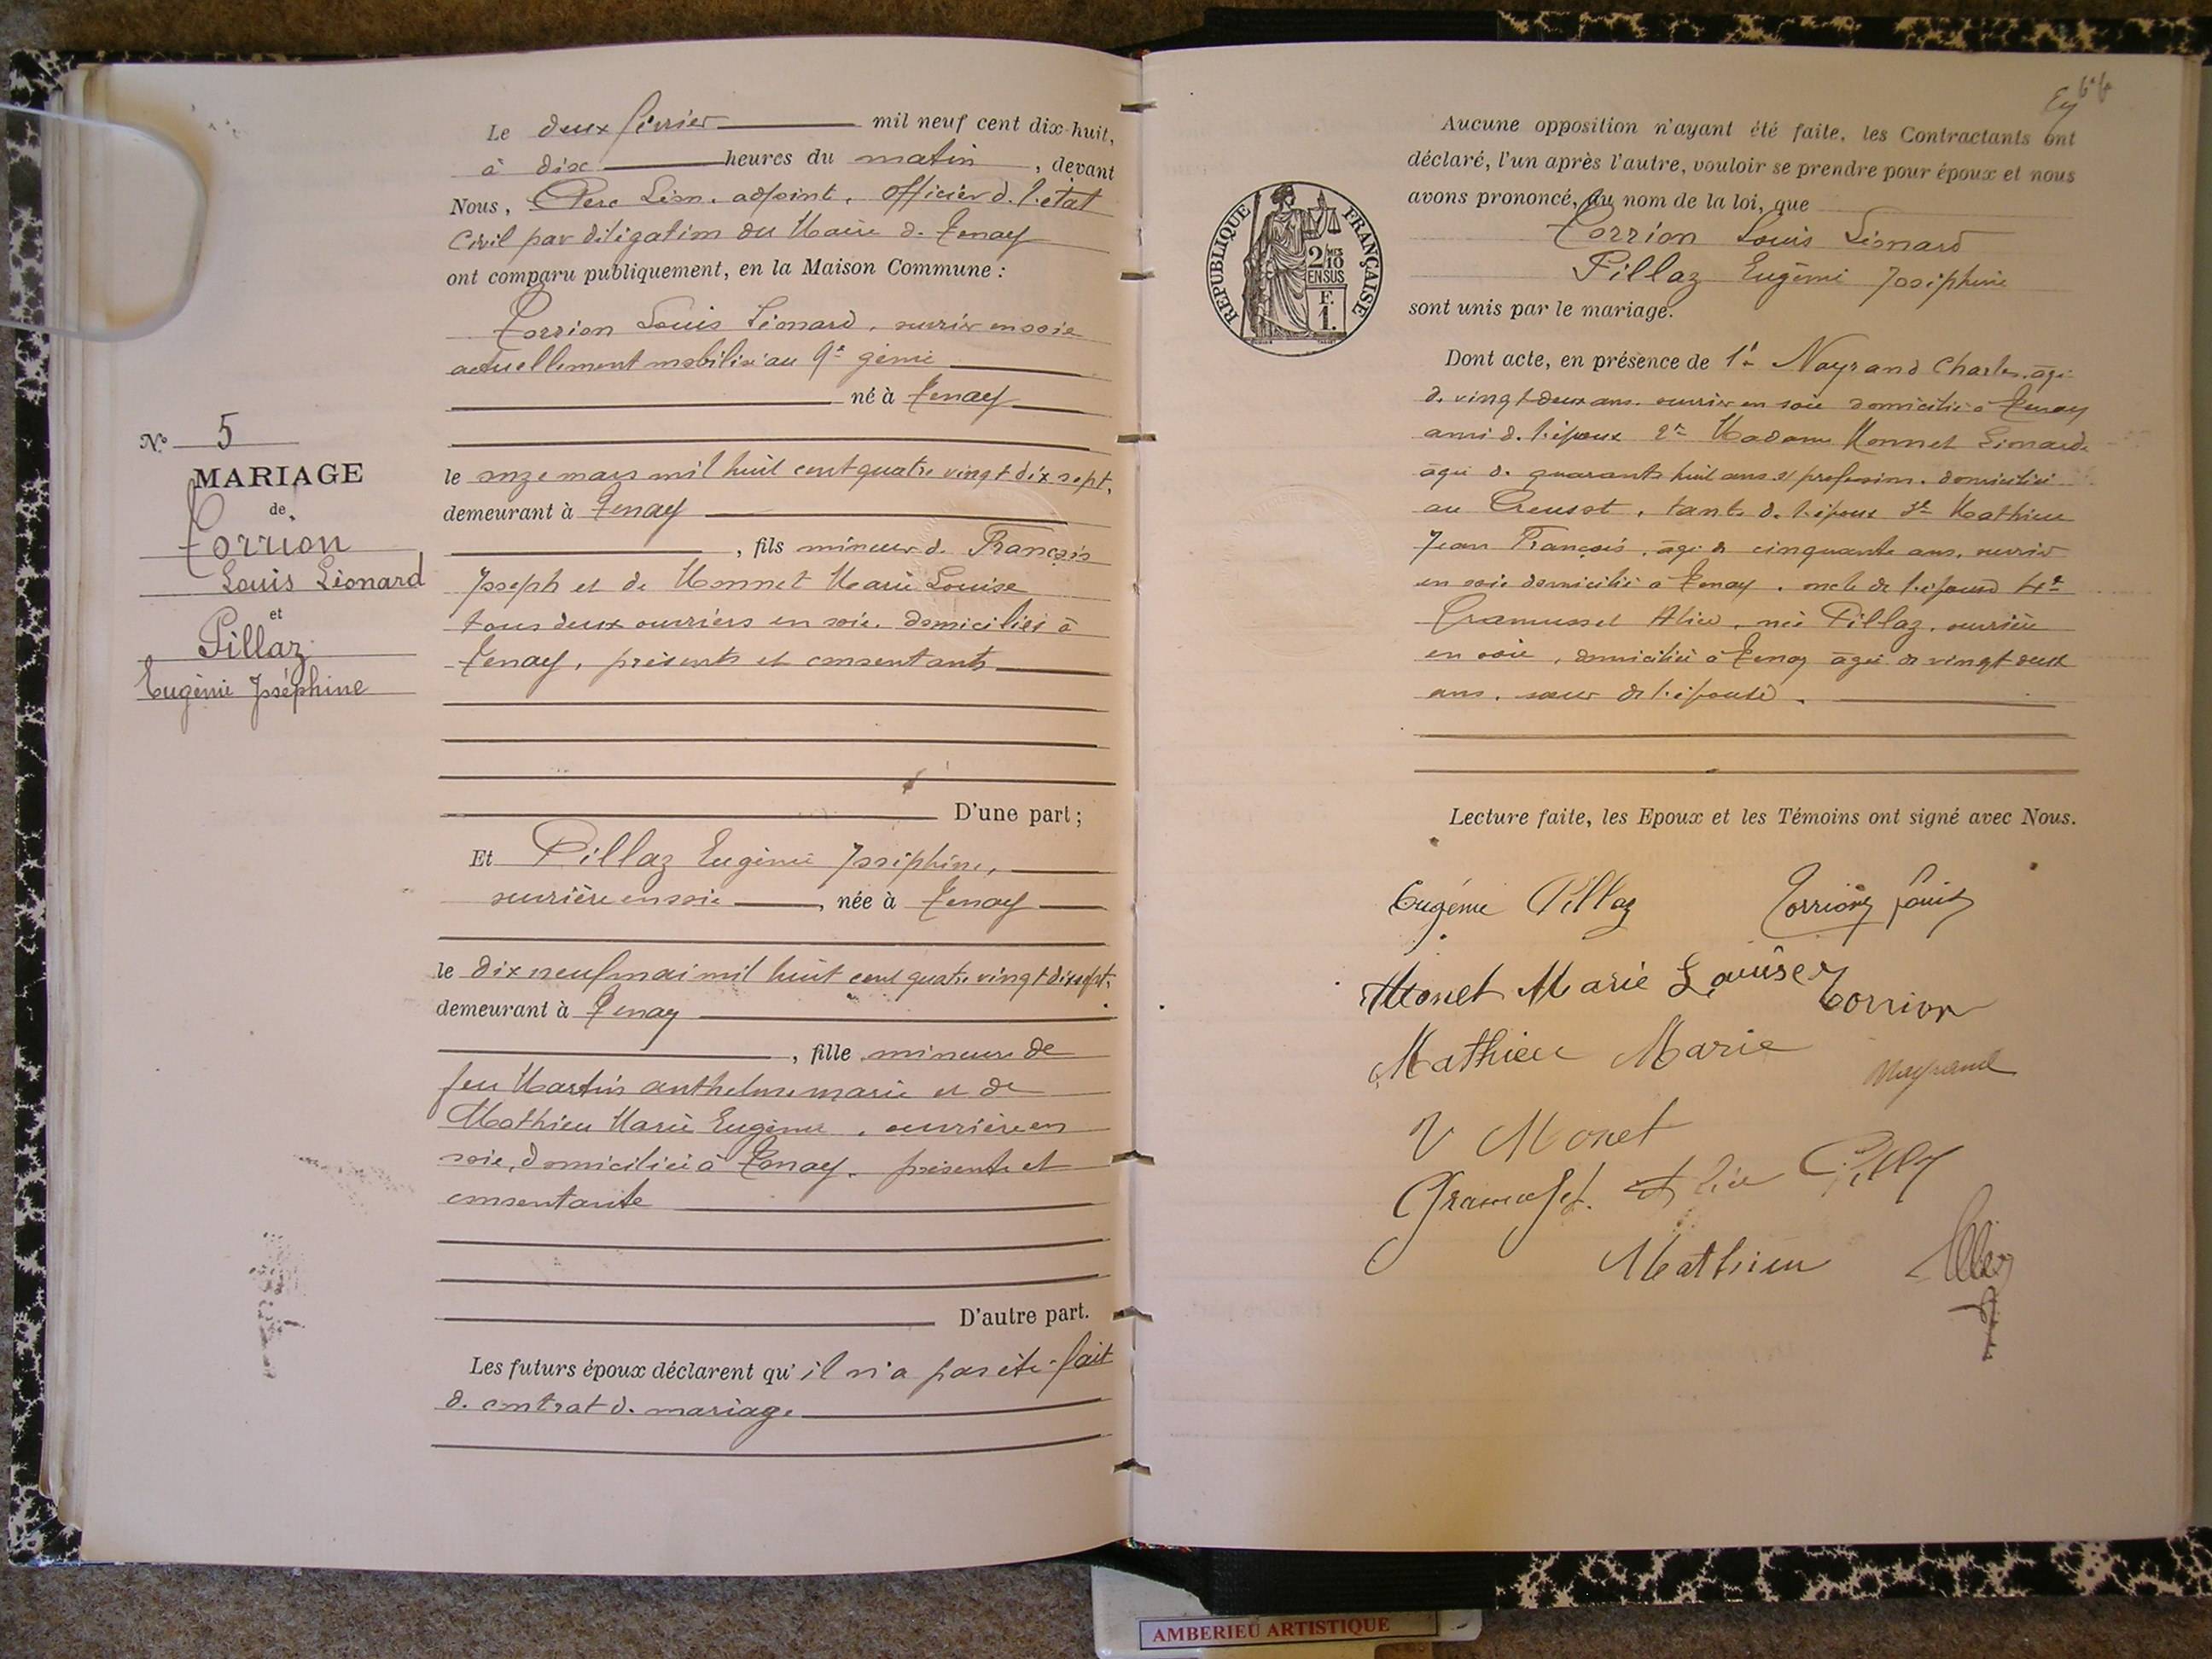 N° 5
MARIAGE
de
Torrion
Louis Léonard
et
Pillaz
Eugénie Joséphine
Le deux février mil neuf cent dix-huit,
à dix heures du matin, devant
Nous, Clerc Léon, adjoint, officier de l'état
civil par délégation du Maire de Tenay
ont comparu publiquement, en la Maison Commune :
Torrion Louis Léonard, ouvrier en soie
actuellement mobilisé au 9e génie
né à Tenay
le onze mars mil huit cent quatre vingt dix sept,
demeurant à Tenay
, fils mineur de François
Joseph et de Monnet Marie Louise
tous deux ouvriers en soie domiciliés à
Tenay, présents et consentants
D'une part ;
Et Pillaz Eugénie Joséphine,
ouvrière en soie, née à Tenay
le dix neuf mai mil huit cent quatre vingt dix sept,
demeurant à Tenay
, fille mineure de
feu Martin anthelme marie et de
Mathieu Marie Eugénie, ouvrière en
soie, domiciliée à Tenay, présente et
consentante
D'autre part.
Les futurs époux déclarent qu'il n'a pas été fait
de contrat de mariage
Aucune opposition n'ayant été faite, les Contractants ont
déclaré, l'un après l'autre, vouloir se prendre pour époux et nous
avons prononcé, au nom de la loi, que
Torrion Louis Léonard
Pillaz Eugénie Joséphine
sont unis par le mariage.
RÉPUBLIQUE FRANÇAISE
2/10
EN SUS
F.
1.
Dont acte, en présence de 1° Nayrand Charles, âgé
de vingt deux ans, ouvrier en soie domicilié à Tenay
ami de l'époux 2° Madame Monnet Léonarde
âgée de quarante huit ans s/ profession, domiciliée
au Creusot, tante de l'époux 3° Mathieu
Jean François, âgé de cinquante ans, ouvrier
en soie domicilié à Tenay, oncle de l'épouse 4°
Gramusset Alice, née Pillaz, ouvrière
en soie, domiciliée à Tenay âgée de vingt deux
ans, sœur de l'épouse.
Lecture faite, les Epoux et les Témoins ont signé avec Nous.
Eugénie Pillaz Torrion Louis
Monet Marie Louise Torrion
Mathieu Marie Nayrand
V Monet
Gramusset Alice Pillaz
Mathieu
AMBERIEU ARTISTIQUE